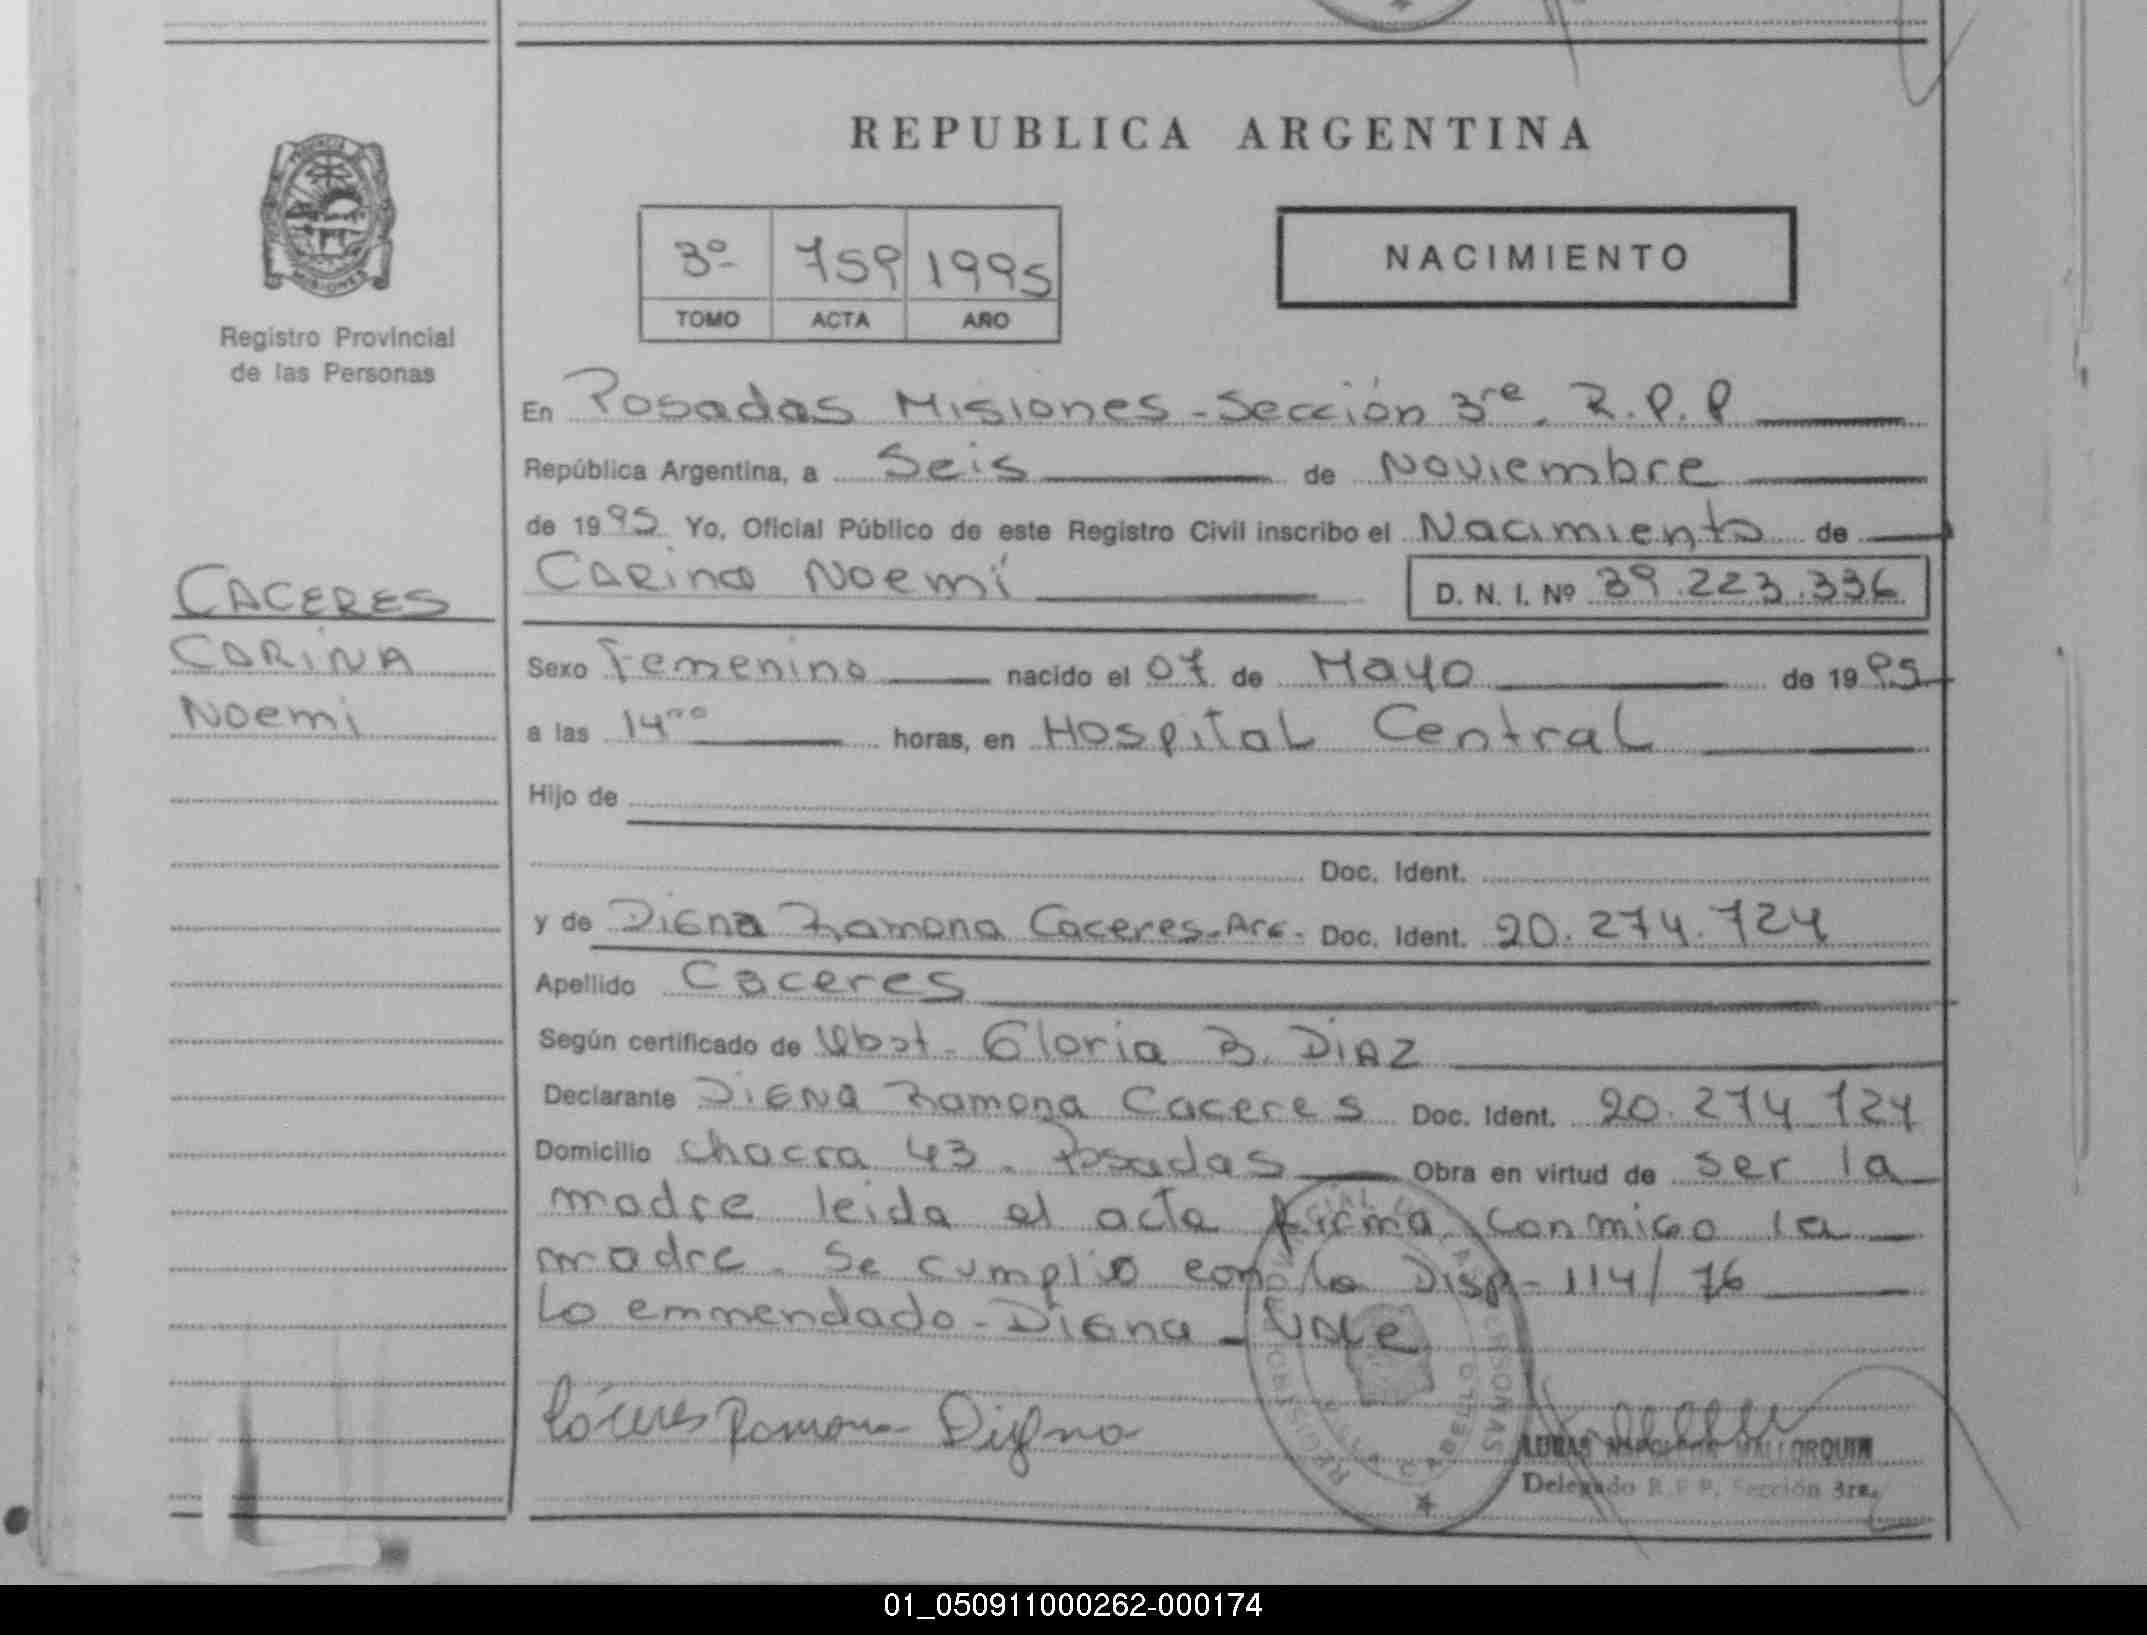 REPUBLICA ARGENTINA
PROVINCIA
MISIONES
Registro Provincial
de las Personas
3º 759 1995
TOMO ACTA AÑO
NACIMIENTO
En Posadas Misiones - Sección 3re. R.P.P
República Argentina, a Seis de Noviembre
de 1995 Yo, Oficial Público de este Registro Civil inscribo el Nacimiento de
Carina Noemí D. N. I. Nº 39.223.336
CACERES
CARINA
Noemi
Sexo Femenino nacido el 07 de Mayo de 1995
a las 14 00 horas, en Hospital Central
Hijo de
Doc. Ident.
y de Digna Ramona Caceres - Arg - Doc. Ident. 20.274.724
Apellido Caceres
Según certificado de Obst. Gloria B. DIAZ
Declarante Digna Ramona Caceres Doc. Ident. 20.274.724
Domicilio Chacra 43 - Posadas Obra en virtud de ser la
madre leida el acta firma conmigo la
madre. Se cumplio con la Disp - 114/76
Lo emmendado - Digna - Vale
Cáceres Ramona Digna
MALLORQUIN
Delegado R.P.P. Sección 3ra.
01_050911000262-000174